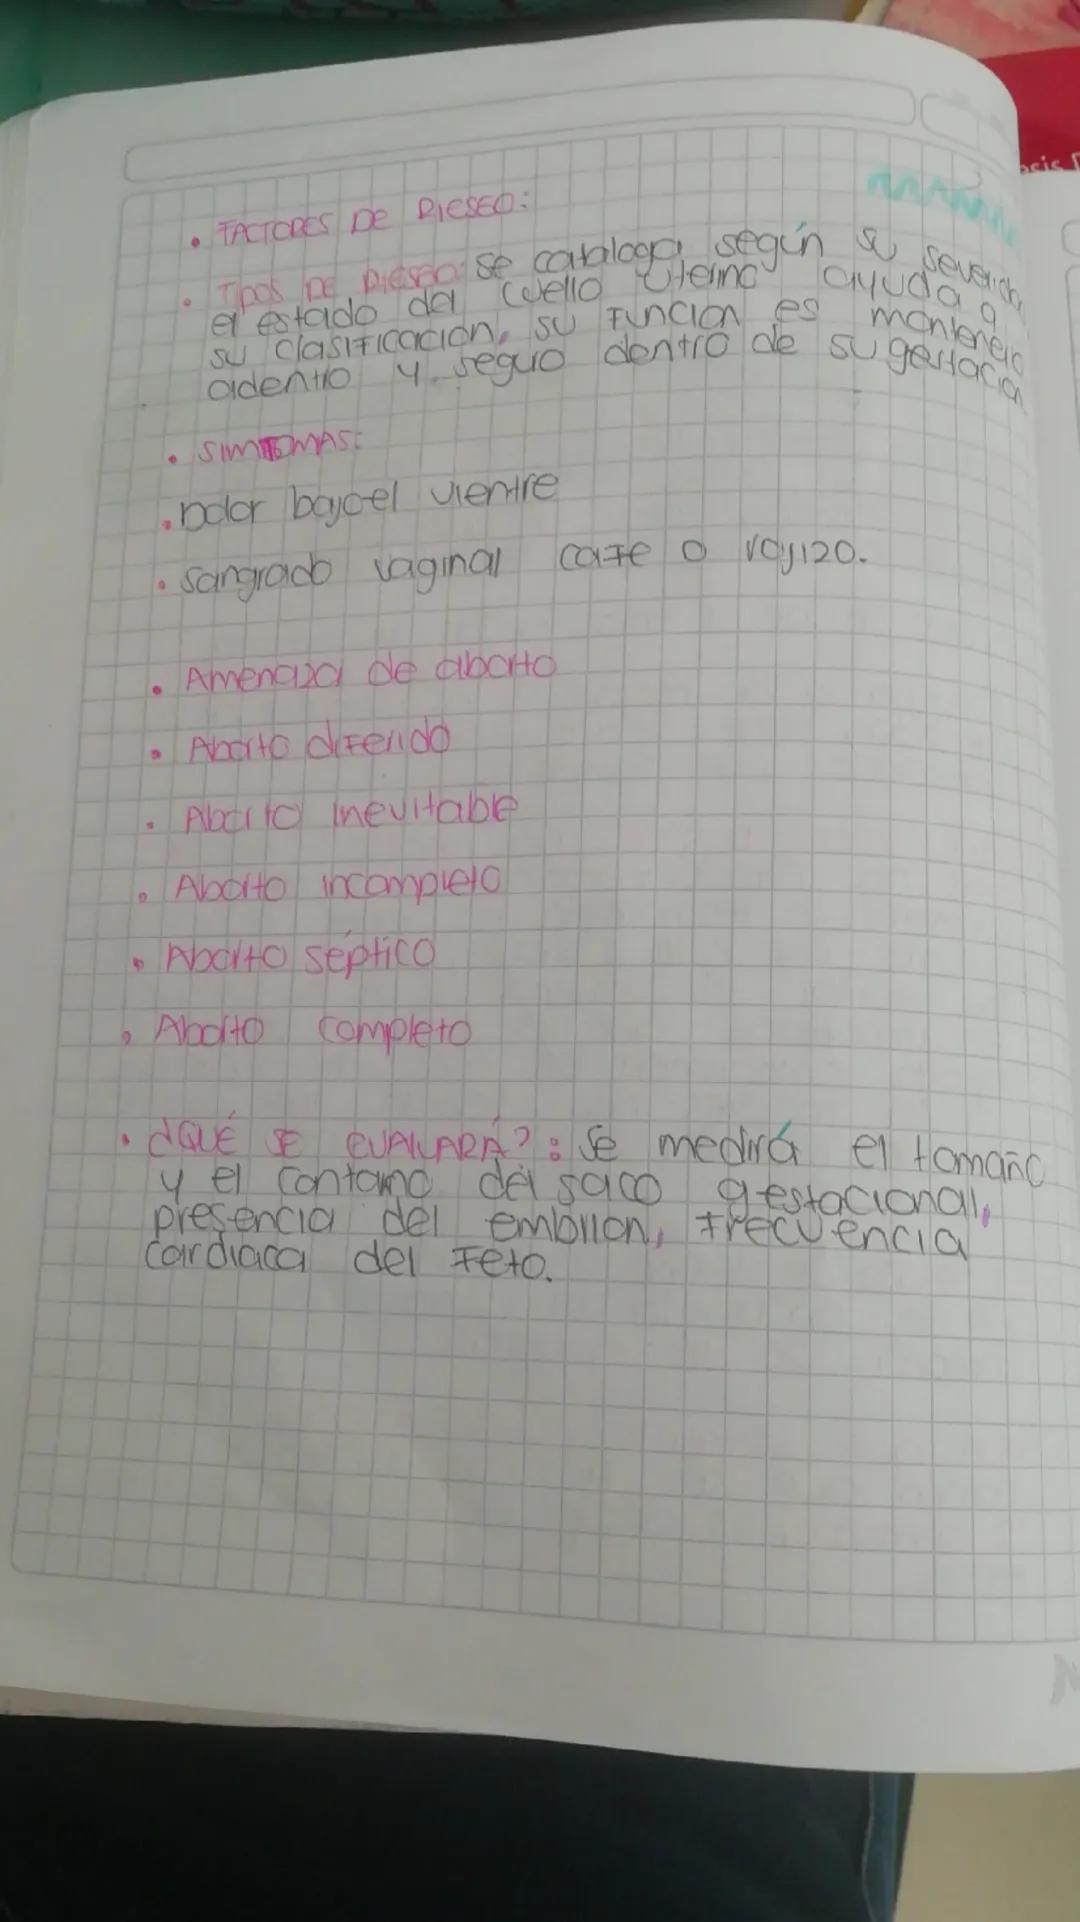 • FACTORES DE RIESGO:
• TIPOS DE RIESGO: se cataloga según su severidad,
el estado del cuello uterino ayuda a
su clasificación, su función es mantenerlo
adentro y seguro dentro de su gestación
• SIMTOMAS:
• Dolor bajo el vientre
• sangrado vaginal cafe o rojizo.
• Amenaza de aborto
• Aborto diferido
• Aborto inevitable
• Aborto incompleto
• Aborto séptico
• Aborto completo
• ¿QUÉ SE EVALUARÁ?: Se medirá el tamaño
y el contorno del saco gestacional,
presencia del embrion, frecuencia
cardiaca del feto.